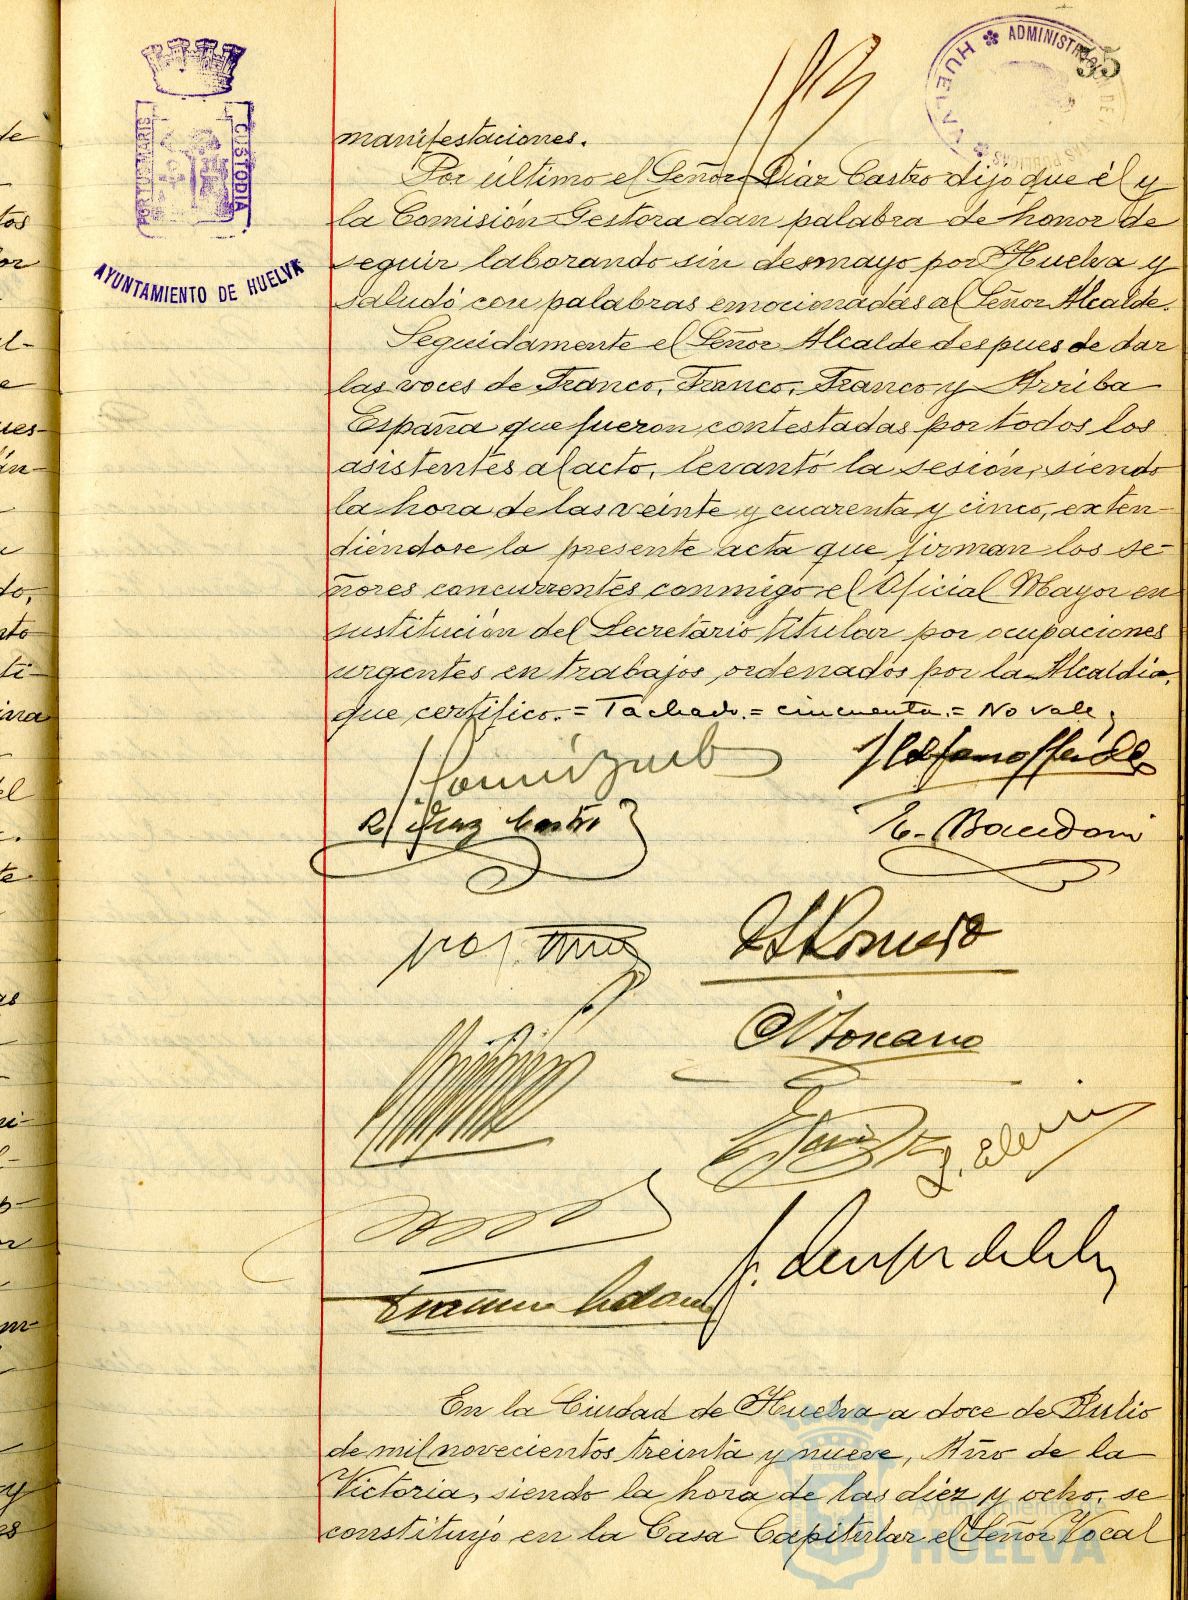 35
ADMINISTRACIÓN DE
HUELVA
PORTUS MARIS
CUSTODIA
AYUNTAMIENTO DE HUELVA
manifestaciones.
Por último el Señor Díaz Castro dijo que él y
la Comisión Gestora dan palabra de honor de
seguir laborando sin desmayo por Huelva y
saludó con palabras emocionadas al Señor Alcalde.
Seguidamente el Señor Alcalde despues de dar
las voces de Franco, Franco, Franco y Arriba
España que fueron contestadas por todos los
asistentes al acto, levantó la sesión, siendo
la hora de las veinte y cuarenta y cinco, exten-
diéndose la presente acta que firman los se-
ñores concurrentes conmigo el Oficial Mayor en
sustitución del Secretario titular por ocupaciones
urgentes en trabajos ordenados por la Alcaldia,
que certifico.= Tachado.= cincuenta.= No vale,
R. Diaz Castro
En la Ciudad de Huelva a doce de Julio
de mil novecientos treinta y nueve, Año de la
Victoria, siendo la hora de las diez y ocho, se
constituyó en la Casa Capitular el Señor Vocal
Ayuntamiento de
HUELVA